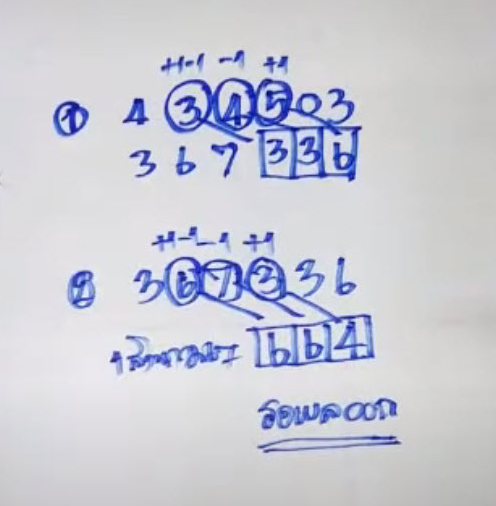 +1-1 -1 +1
① 4 3 4 5 0 3
3 6 7 3 3 6
+1-1 -1 +1
② 3 6 7 3 3 6
1 สิงหาคม 6 6 4
รอผลออก